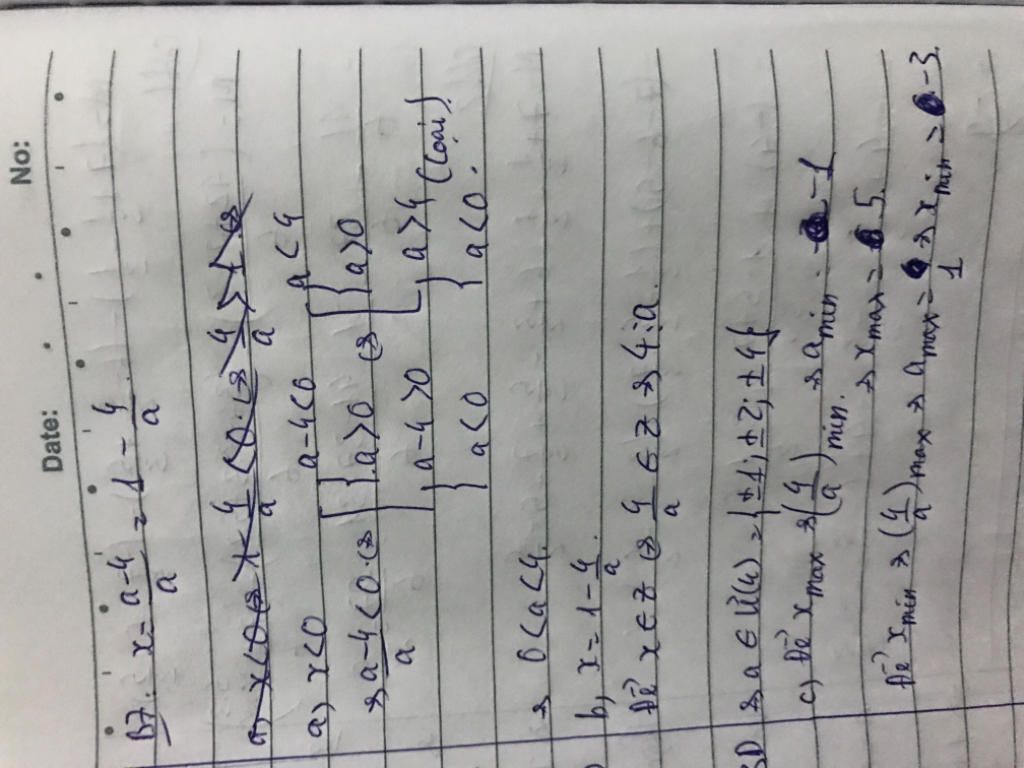 No:
Date:
B7. x = a-4/a = 1 - 4/a
a) x<0 ⇔ 1 - 4/a <0. ⇔ 4/a > 1 ⇔
a) x<0
⇒ a-4/a <0. ⇔ [ { a-4<0 a>0 { a-4>0 a<0 ⇔ [ { a<4 a>0 { a>4 a<0. (loại).
⇒ 0<a<4.
b, x = 1 - 4/a.
Để x ∈ Z ⇔ 4/a ∈ Z ⇒ 4⋮a.
⇒ a ∈ Ư(4) = {±1; ±2; ±4}
c) Để x max ⇒ (4/a) min. ⇒ a min = -1
⇒ x max = 5.
Để x min ⇒ (4/a) max ⇒ a max = 1 ⇒ x min = -3.